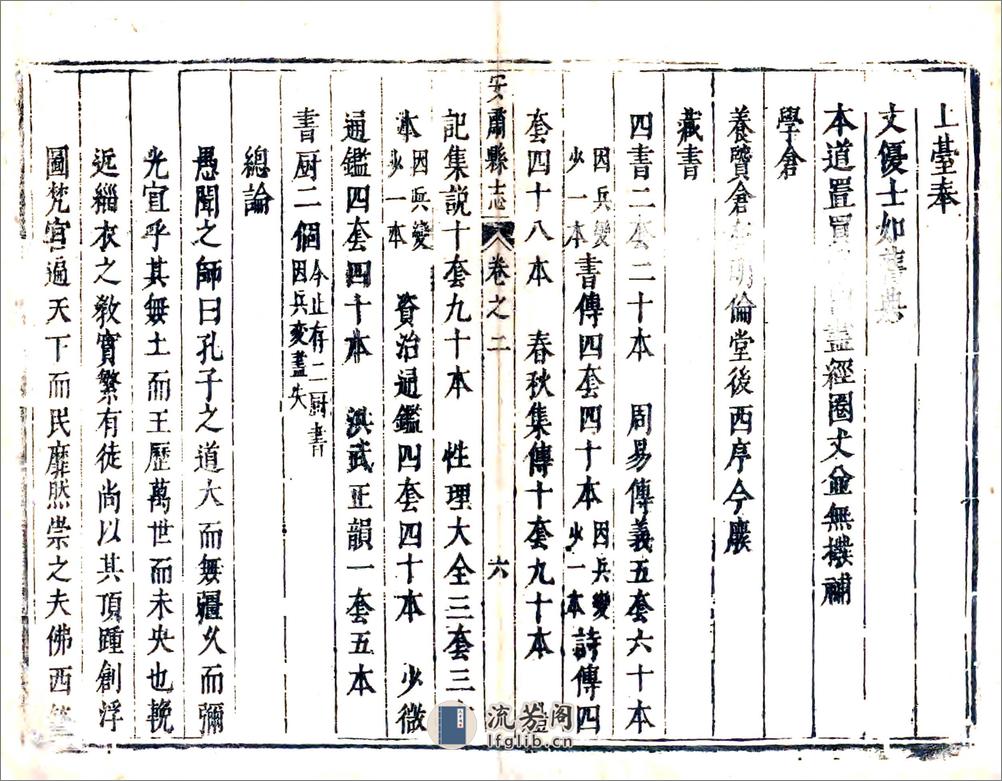 上臺奉
文優士如舊典
本道置買盡經圈丈並無撥補
學倉
養贒倉明倫堂後西序今廢
藏書
四書二套二十本　周易傳義五套六十本
因兵變少一本　書傳四套四十本　因兵變少一本　詩傳四
套四十八本　春秋集傳十套九十本　禮
安肅縣志　卷之二　六
記集說十套九十本　性理大全三套三
本　因兵變少一本　資治通鑑四套四十本　少微
通鑑四套四十本　洪武正韻一套五本
書厨二個　今止有二厨書因兵变盡失
總論
愚聞之師曰孔子之道大而無疆久而彌
光宜乎其無土而王歷萬世而未央也輓
近緇衣之教實繁有徒尚以其頂踵創浮
圖梵宫遍天下而民靡然崇之夫佛西
流芳阁
lfglib.cn